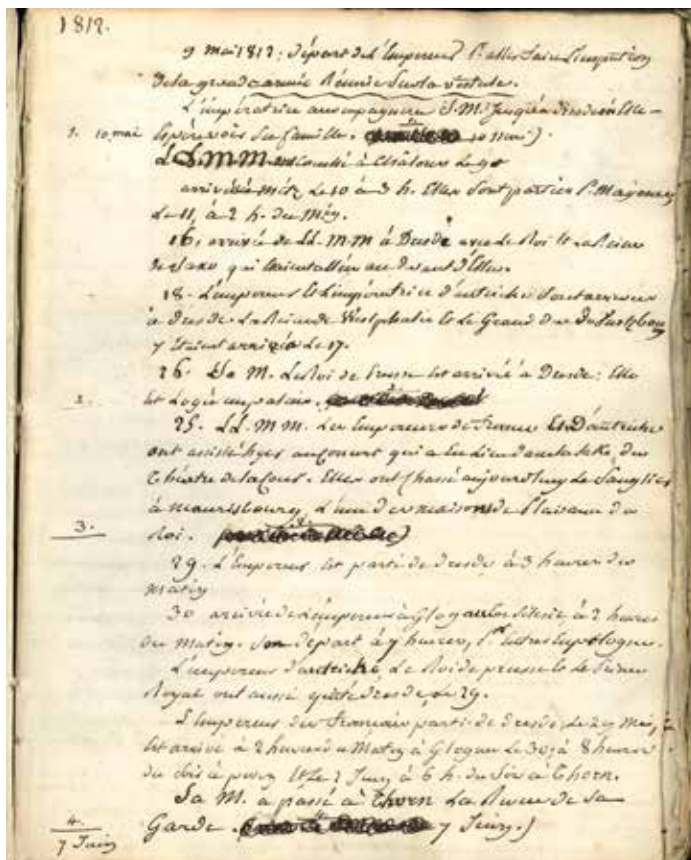 1812.
9 mai 1812: départ de l'Empereur pr aller faire l'inspection
de la grande armée Réunie sur la vistule.
L'impératrice accompagnera S. M. jusqu'à dresde où Elle
1. 10 mai espère voir sa famille. 10 mai).
LL. M M. ont couché à Châlons le 9
arrivée à Metz le 10 à 3 h. Elles sont parties pr Mayence
Le 11, à 2 h. du
16, arrivée de LL. M M à Dresde avec le Roi et la Reine
de Saxe qui étaient allés au devant d'Elles.
18. L'empereur et l'impératrice d'autriche sont arrivés
à dresde. La Reine de Westphalie et le Grand Duc de
y étaient arrivés le 17.
26. Sa M. Le Roi de Prusse est arrivé à Dresde: Elle
2. est logée au palais.
25. LL. M M. Les Empereurs de France Et D'autriche
ont assisté hyer au concert qui a eu lieu dans la salle du
théâtre de la Cour. Elles ont chassé aujourd'huy le Sanglier
à l'une des maisons de Plaisance du
3. Roi.
29. L'Empereur est parti de dresde à 3 heures du
matin
30 arrivée de l'empereur à Glogau en Silésie, à 2 heures
du matin. Son départ à 7 heures, pr la pologne.
L'empereur d'autriche, Le Roi de prusse et le Prince
Royal ont aussi quitté dresde, le 29.
L'Empereur des français parti de dresde, Le 29 Mai,
est arrivé à 2 heures du Matin à Glogau Le 30, à 8 heures
du soir à posen et le 2 Juin à 6 h. du Soir à Thorn.
Sa M. a passé à Thorn La Revue de sa
4. Garde. 7 Juin.)
7 Juin